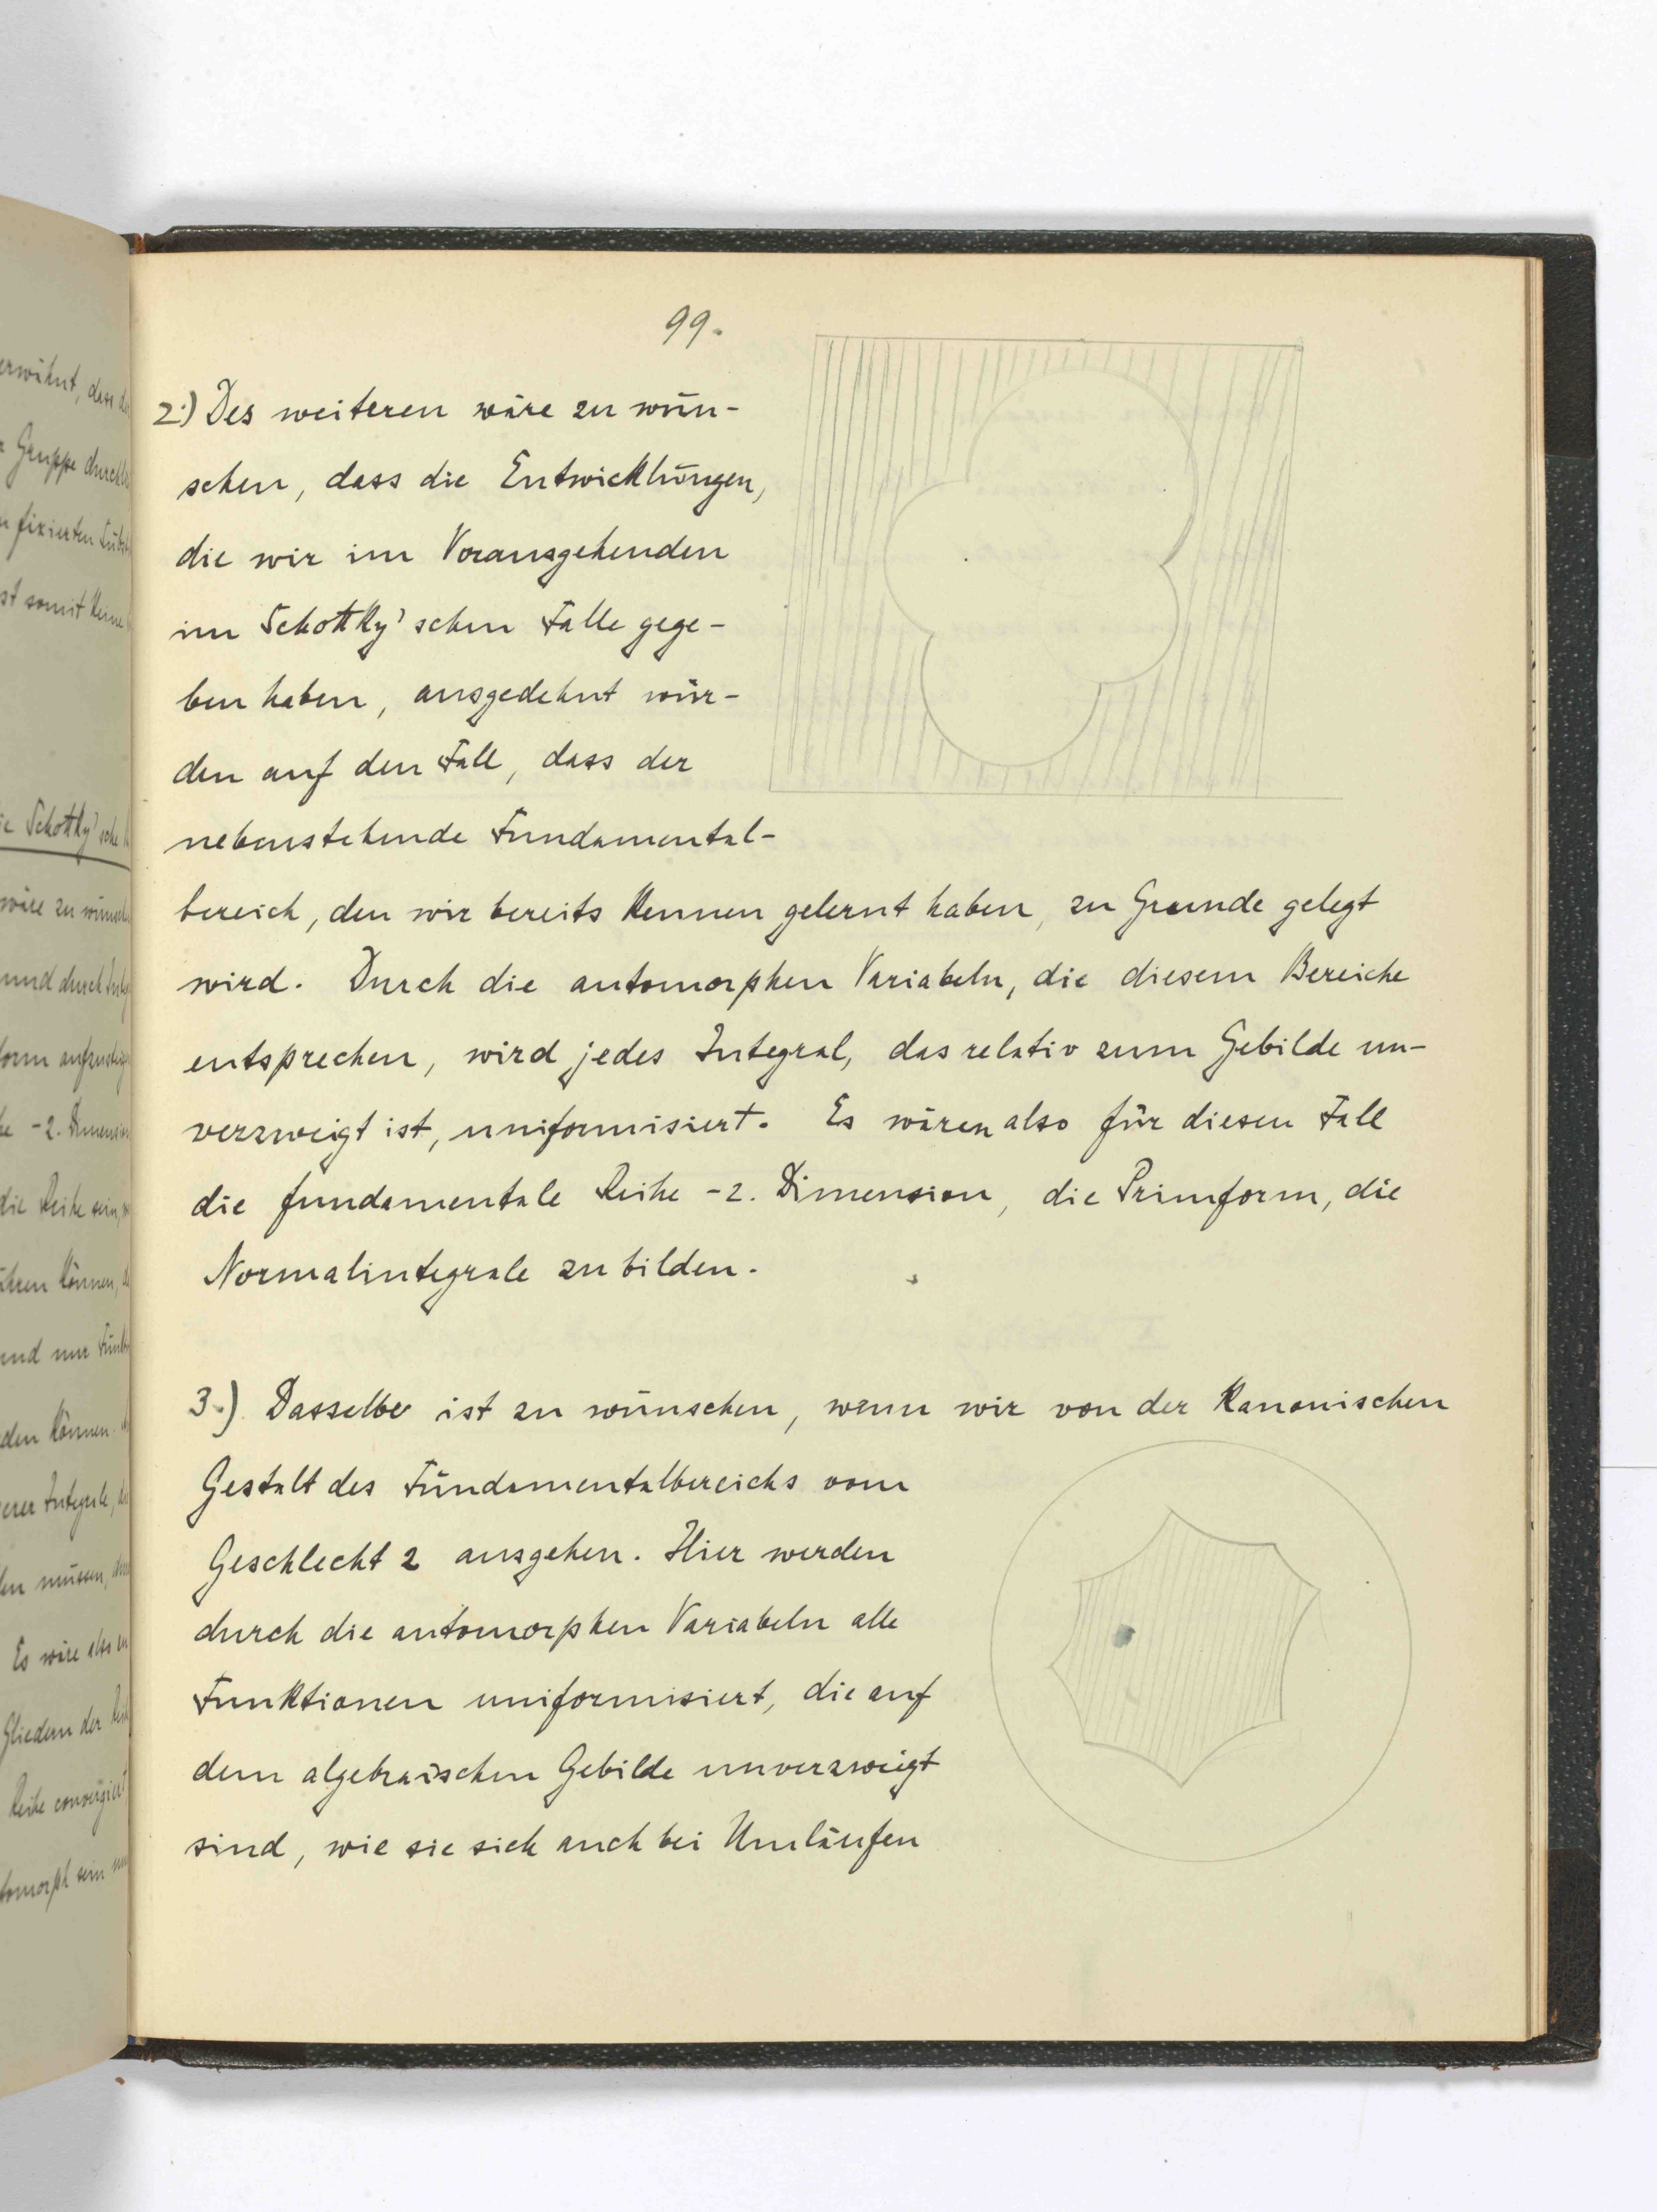 99.
2.) Des weiteren wäre zu wün-
schen, dass die Entwicklungen,
die wir im Vorausgehenden
im Schottky'schen Falle gege-
ben haben, ausgedehnt wür-
den auf den Fall, dass der
nebenstehende Fundamental-
bereich, den wir bereits kennen gelernt haben, zu Grunde gelegt
wird. Durch die automorphen Variabeln, die diesem Bereiche
entsprechen, wird jedes Integral, das relativ zum Gebilde un-
verzweigt ist, uniformisiert. Es wären also für diesen Fall
die fundamentale Reihe -2. Dimension, die Primform, die
Normalintegrale zu bilden.
3.) Dasselbe ist zu wünschen, wenn wir von der kanonischen
Gestalt des Fundamentalbereichs vom
Geschlecht 2 ausgehen. Hier werden
durch die automorphen Variabeln alle
Funktionen uniformisiert, die auf
dem algebraischen Gebilde unverzweigt
sind, wie sie sich auch bei Umläufen
erwähnt, dass
Gruppe
fixierten
st somit keine
Schottky'sche
wäre zu
und durch
-2. Dimension
die Reihe sein,
können,
und nur
den können
Integrale,
müssen,
Es wäre also
Gliedern der
Reihe
sein